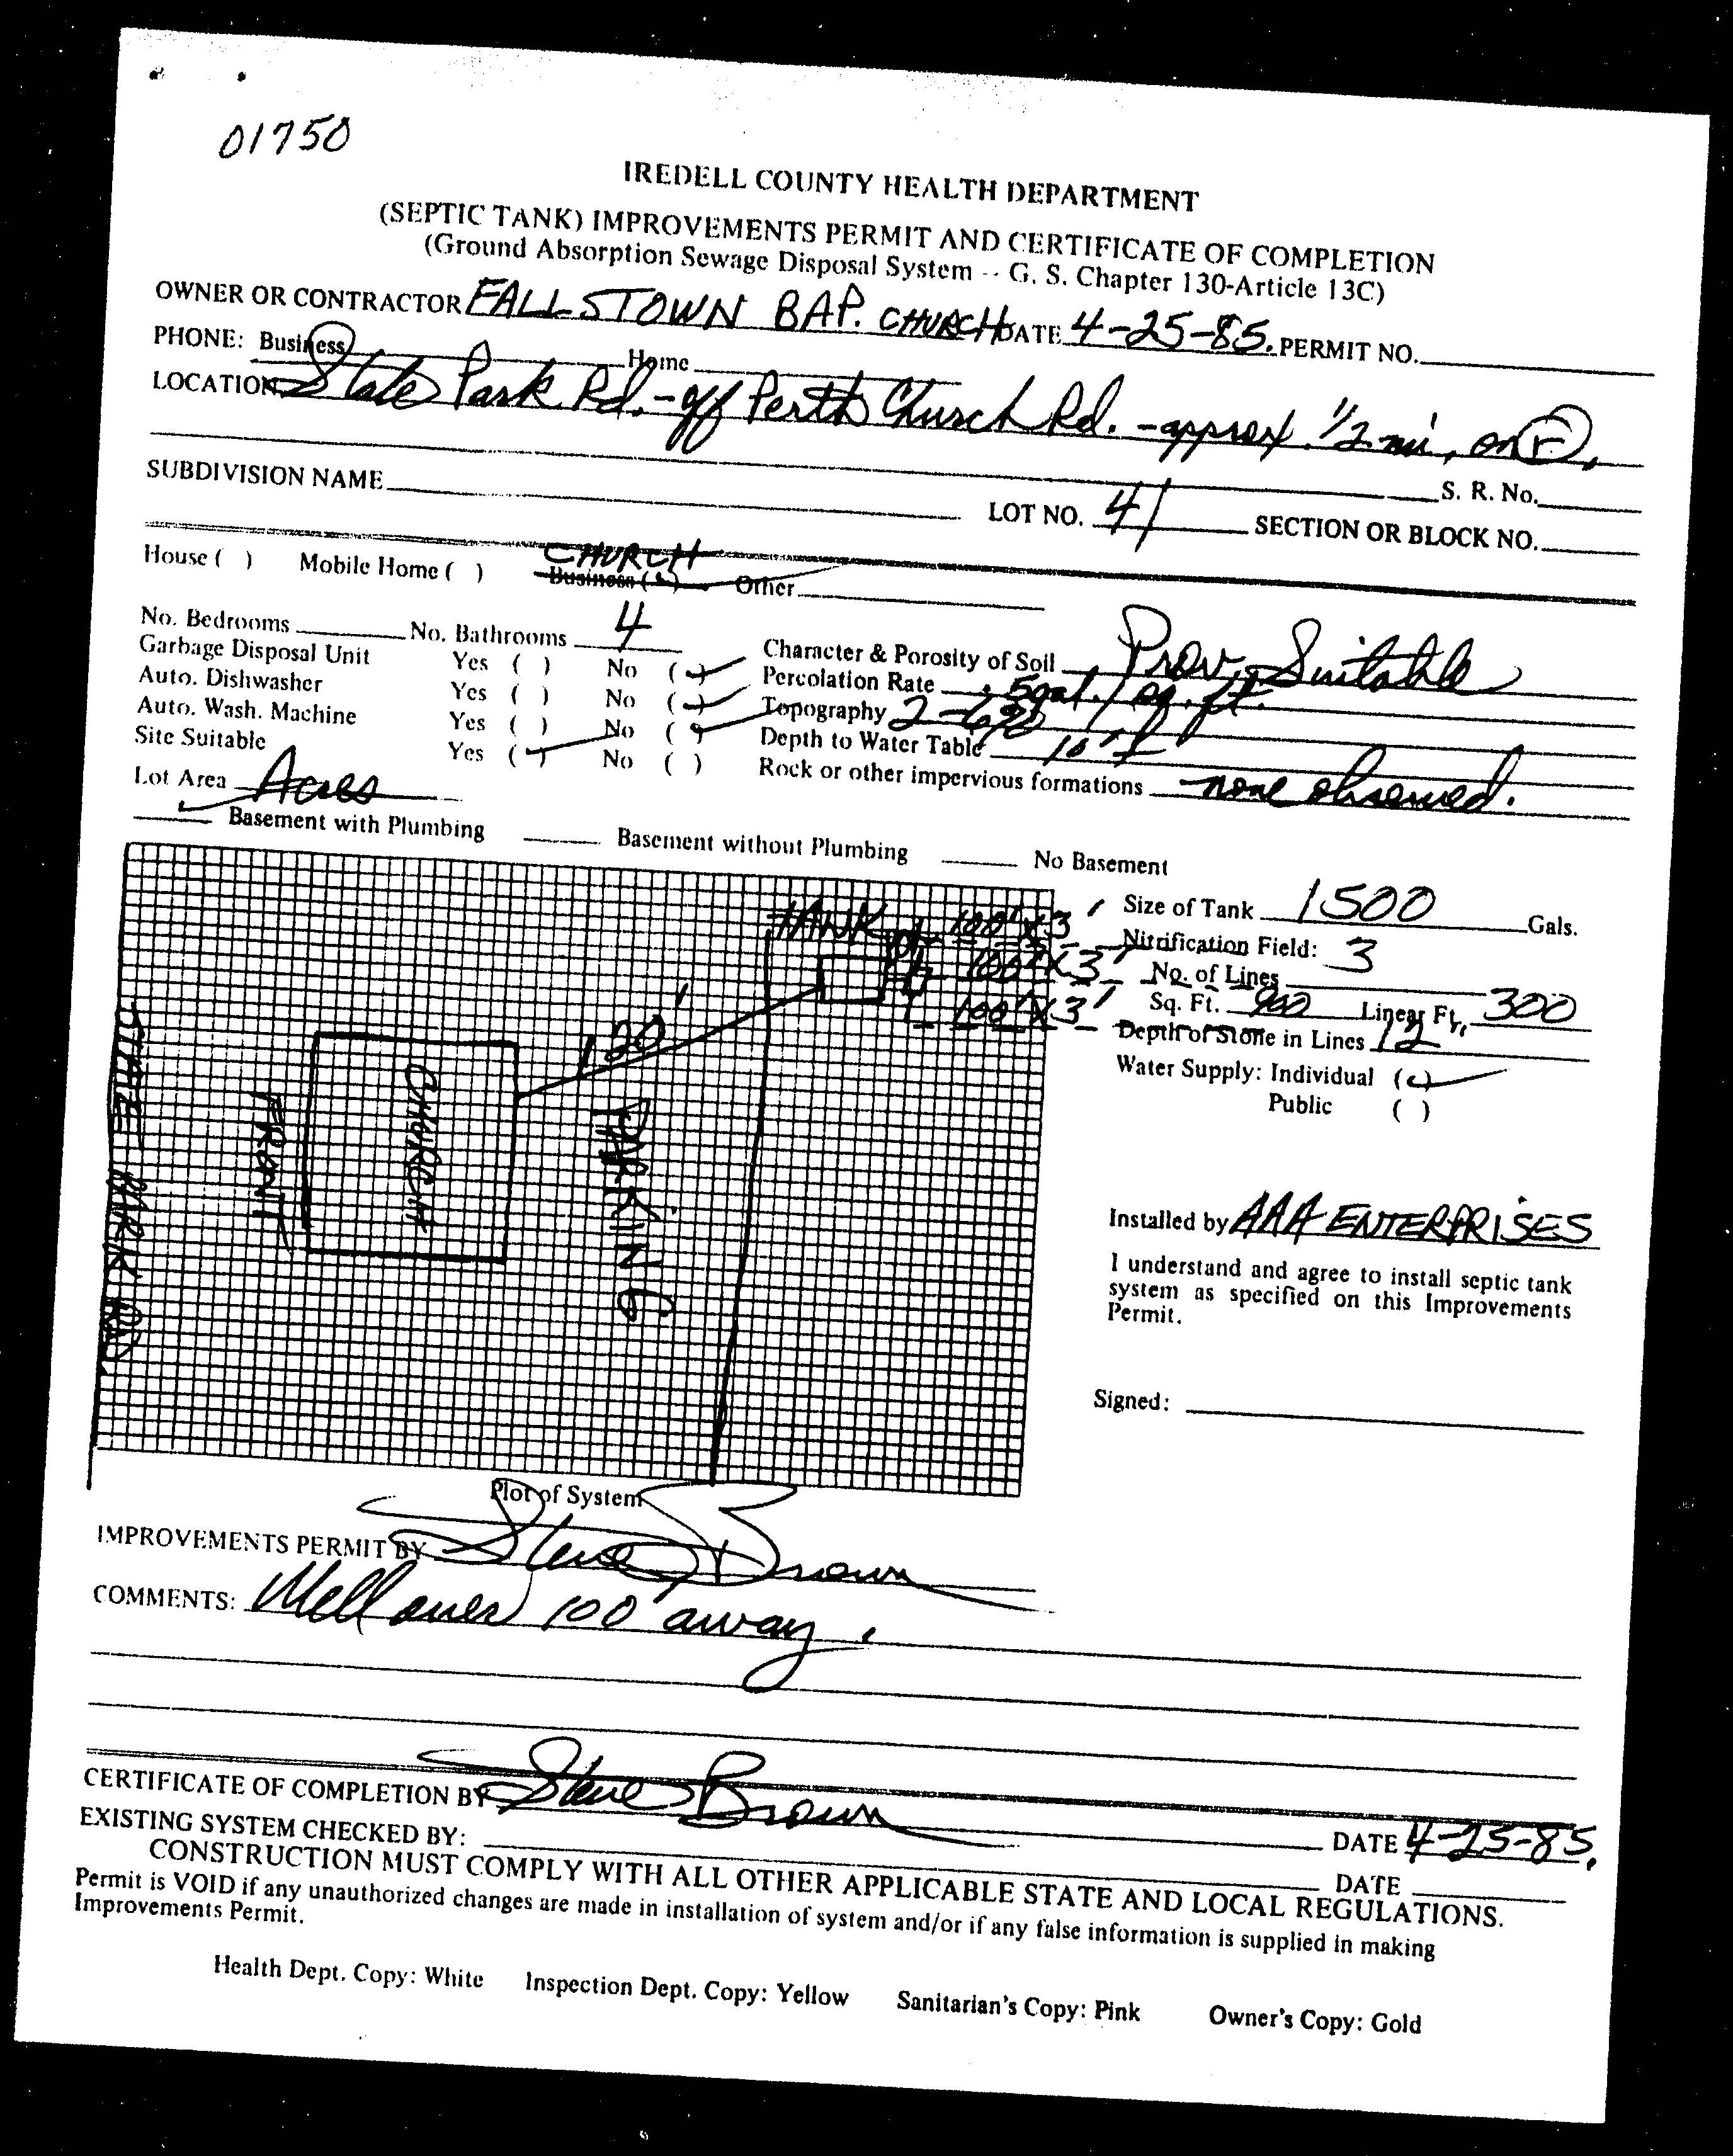 01750
IREDELL COUNTY HEALTH DEPARTMENT
(SEPTIC TANK) IMPROVEMENTS PERMIT AND CERTIFICATE OF COMPLETION
(Ground Absorption Sewage Disposal System -- G. S. Chapter 130-Article 13C)
OWNER OR CONTRACTOR FALLSTOWN BAP. CHURCH DATE 4-25-85. PERMIT NO.
PHONE: Business Home
LOCATION State Park Rd. - off Perth Church Rd. - approx. 1/2 mi, on r.
S. R. No.
SUBDIVISION NAME LOT NO. 41 SECTION OR BLOCK NO.
CHURCH
House ( ) Mobile Home ( ) Business ( ) Other
No. Bedrooms No. Bathrooms 4
Garbage Disposal Unit Yes ( ) No (✓)
Auto. Dishwasher Yes ( ) No (✓)
Auto. Wash. Machine Yes ( ) No (✓)
Site Suitable Yes (✓) No ( )
Lot Area Acres
Character & Porosity of Soil Prov. Suitable
Percolation Rate .5gal./sq.ft.
Topography 2-6%
Depth to Water Table 10'+
Rock or other impervious formations none observed.
✓ Basement with Plumbing Basement without Plumbing No Basement
TANK
100'X3'
100'X3'
100'X3'
120'
STATE PARK RD.
FRONT
CHURCH
PARKING
Size of Tank 1500 Gals.
Nitrification Field:
No. of Lines 3
Sq. Ft. 900 Linear Ft. 300
Depth of Stone in Lines 12"
Water Supply: Individual (✓)
Public ( )
Installed by AAA ENTERPRISES
I understand and agree to install septic tank
system as specified on this Improvements
Permit.
Signed:
Plot of System
IMPROVEMENTS PERMIT BY Steve Brown
COMMENTS: Well over 100' away.
CERTIFICATE OF COMPLETION BY Steve Brown DATE 4-25-85.
EXISTING SYSTEM CHECKED BY: DATE
CONSTRUCTION MUST COMPLY WITH ALL OTHER APPLICABLE STATE AND LOCAL REGULATIONS.
Permit is VOID if any unauthorized changes are made in installation of system and/or if any false information is supplied in making
Improvements Permit.
Health Dept. Copy: White Inspection Dept. Copy: Yellow Sanitarian's Copy: Pink Owner's Copy: Gold